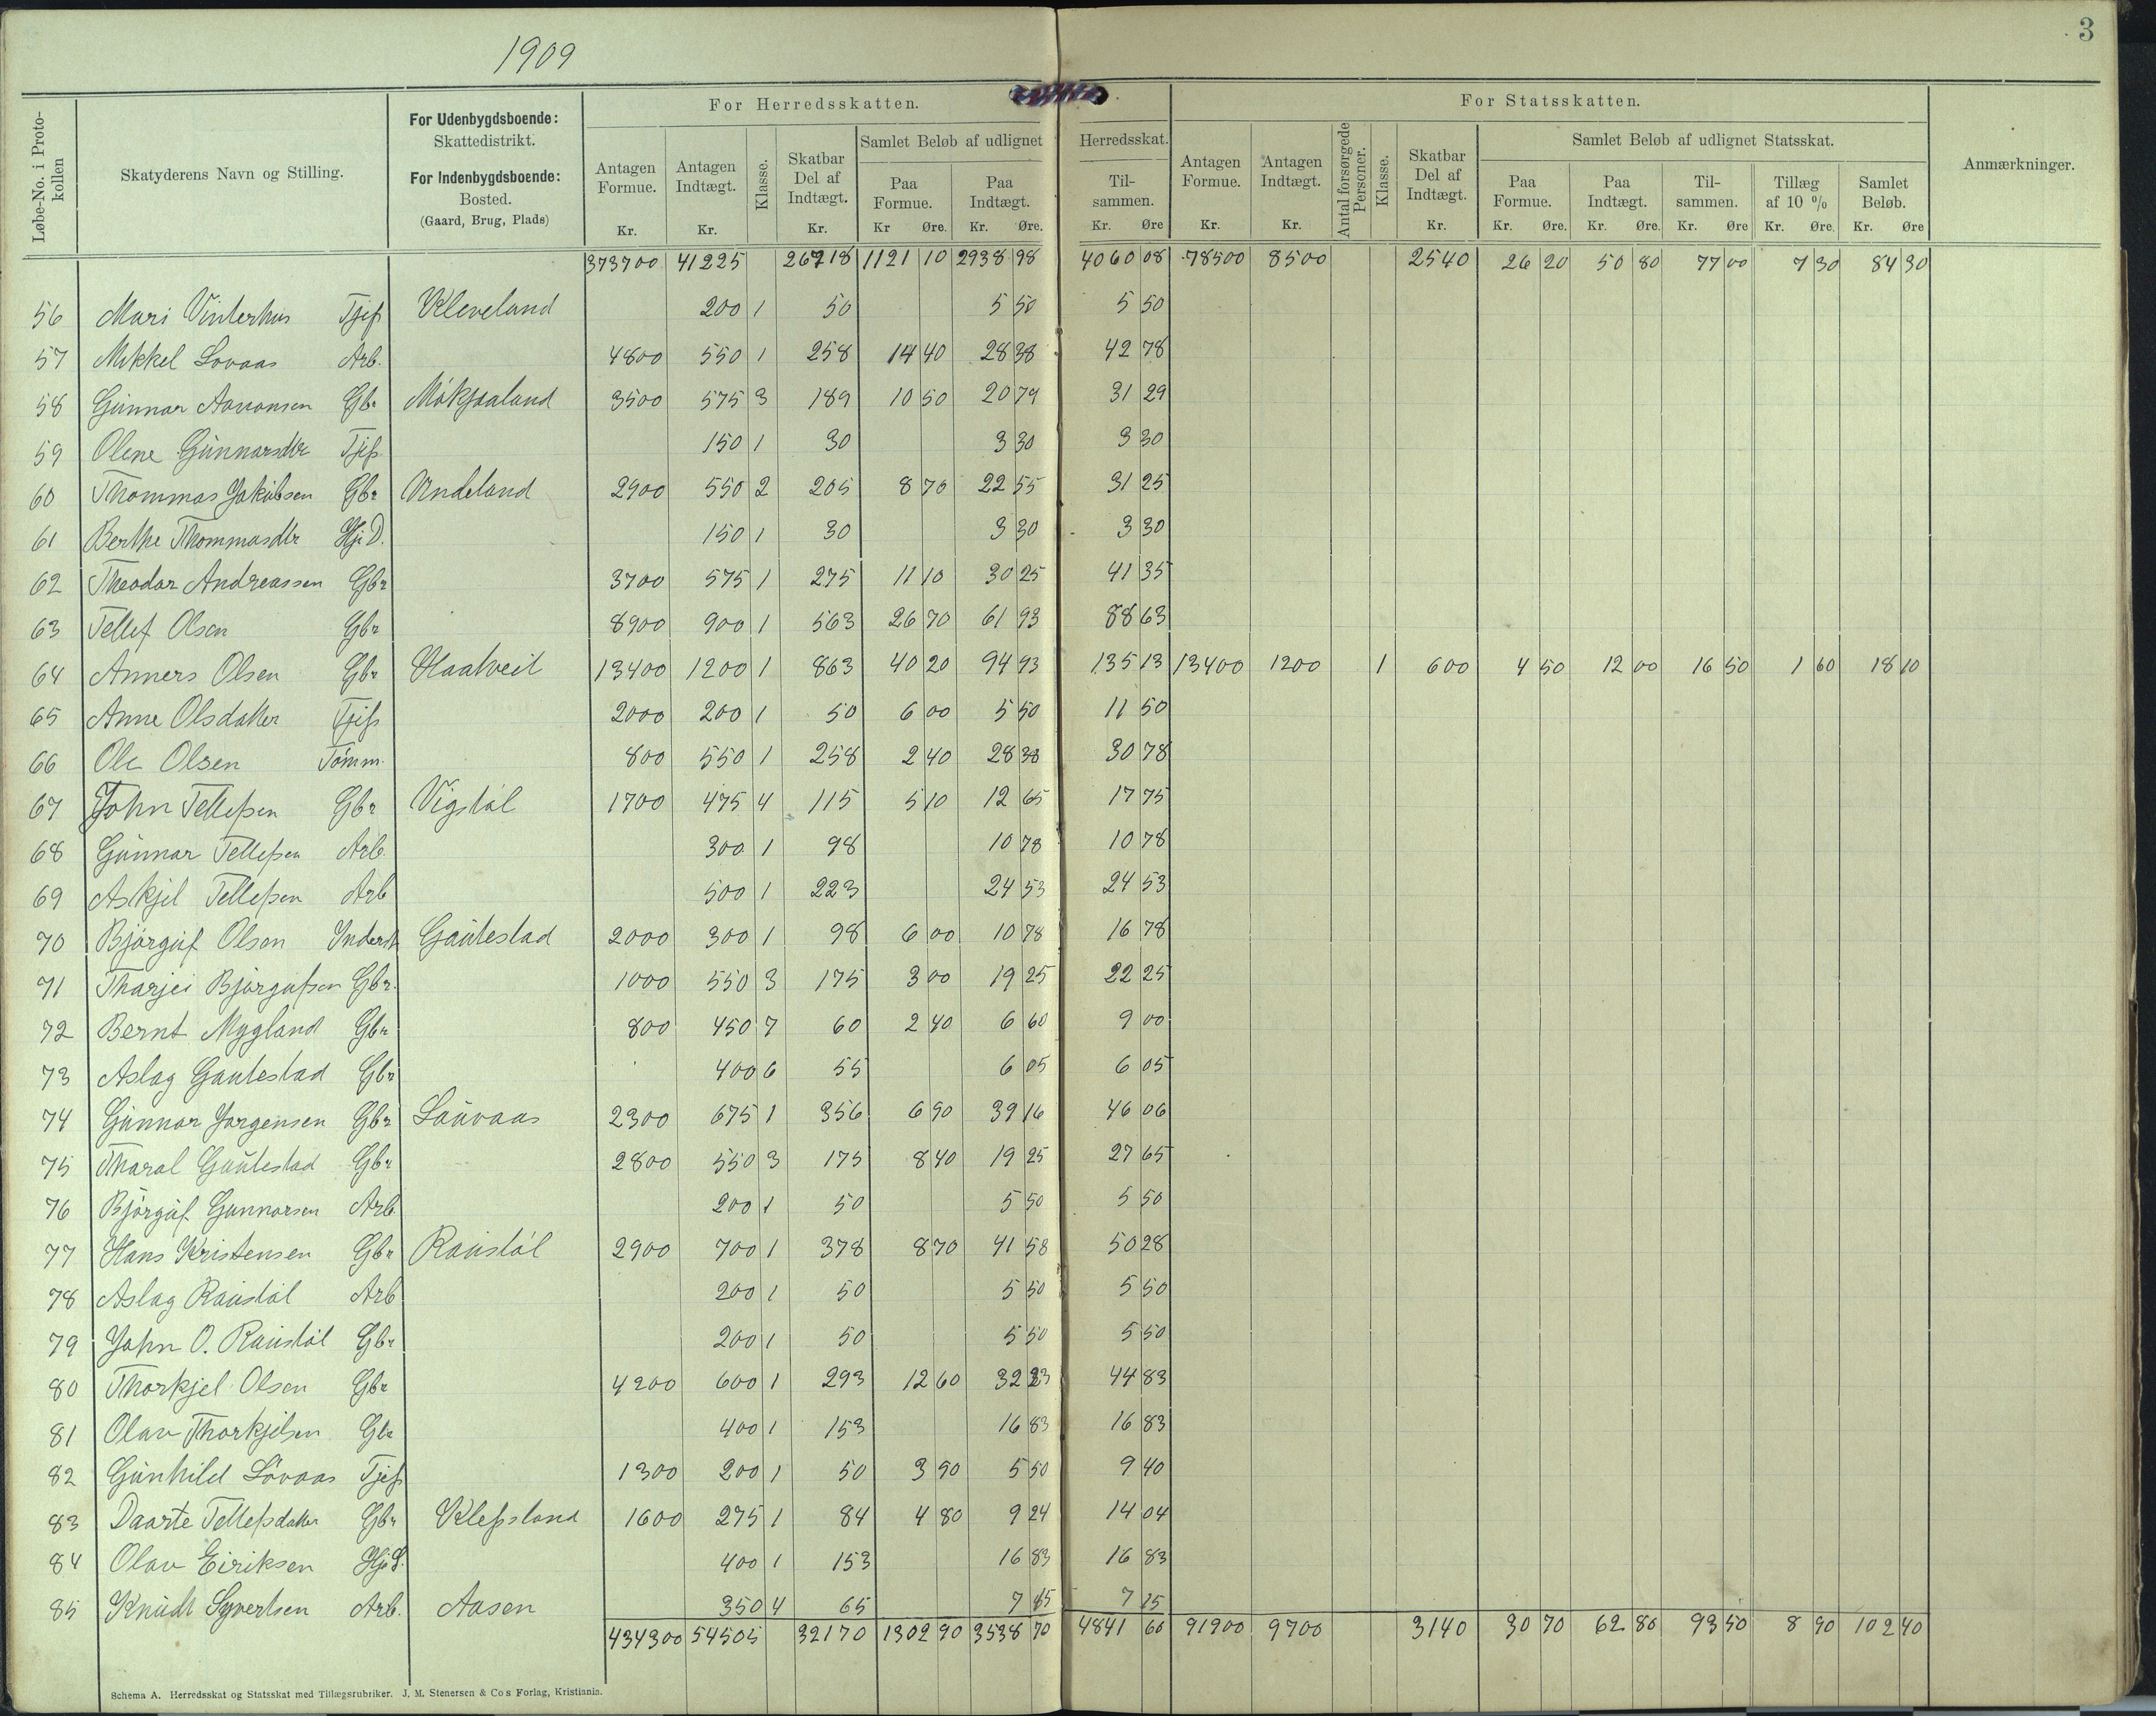 1909
3
Løbe-No. i Protokollen
Skatyderens Navn og Stilling.
For Udenbygdsboende:
Skattedistrikt.
For Indenbygdsboende:
Bosted.
(Gaard, Brug, Plads)
For Herredsskatten.
Antagen Formue. Kr.
Antagen Indtægt. Kr.
Klasse.
Skatbar Del af Indtægt. Kr.
Samlet Beløb af udlignet Herredsskat.
Paa Formue. Kr Øre.
Paa Indtægt. Kr. Øre.
Tilsammen. Kr. Øre
For Statsskatten.
Antagen Formue. Kr.
Antagen Indtægt. Kr.
Antal forsørgede Personer.
Klasse.
Skatbar Del af Indtægt. Kr.
Samlet Beløb af udlignet Statsskat.
Paa Formue. Kr. Øre.
Paa Indtægt. Kr. Øre.
Tilsammen. Kr. Øre
Tillæg af 10 % Kr. Øre.
Samlet Beløb. Kr. Øre
Anmærkninger.
373700 41225 26718 1121 10 2938 98 4060 08 78500 8500 2540 26 20 50 80 77 00 7 30 84 30
56 Mari Vinterhus Tjep Kleveland 200 1 50 5 50 5 50
57 Mikkel Lovaas Arb. 4800 550 1 258 14 40 28 38 42 78
58 Gunnar Aanonsen Gbr Mökjaaland 3500 575 3 189 10 50 20 79 31 29
59 Olene Gunnarsdtr Tjep 150 1 30 3 30 3 30
60 Thommas Jakobsen Gbr Andeland 2900 550 2 205 8 70 22 55 31 25
61 Berthe Thommasdtr Hj. D. 150 1 30 3 30 3 30
62 Theodor Andreassen Gbr 3700 575 1 275 11 10 30 25 41 35
63 Tellef Olsen Gbr 8900 900 1 563 26 70 61 93 88 63
64 Anners Olsen Gbr Haatveit 13400 1200 1 863 40 20 94 93 135 13 13400 1200 1 600 4 50 12 00 16 50 1 60 18 10
65 Anne Olsdatter Tjep 2000 200 1 50 6 00 5 50 11 50
66 Ole Olsen Tömm. 800 550 1 258 2 40 28 38 30 78
67 John Tellefsen Gbr Vigstöl 1700 475 4 115 5 10 12 65 17 75
68 Gunnar Tellefsen Arb. 300 1 98 10 78 10 78
69 Askjel Tellefsen Arb 500 1 223 24 53 24 53
70 Björguf Olsen Inderst Gautestad 2000 300 1 98 6 00 10 78 16 78
71 Tharjei Björgufsen Gbr. 1000 550 3 175 3 00 19 25 22 25
72 Bernt Mygland Gbr 800 450 7 60 2 40 6 60 9 00
73 Aslag Gautestad Gbr 400 6 55 6 05 6 05
74 Gunnar Jorgensen Gbr Lauvaas 2300 675 1 356 6 90 39 16 46 06
75 Tharal Gautestad Gbr 2800 550 3 175 8 40 19 25 27 65
76 Björguf Gunnarsen Arb. 200 1 50 5 50 5 50
77 Hans Kristensen Gbr Raustöl 2900 700 1 378 8 70 41 58 50 28
78 Aslag Raustöl Arb 200 1 50 5 50 5 50
79 John O. Raustöl Gbr 200 1 50 5 50 5 50
80 Thorkjel Olsen Gbr 4200 600 1 293 12 60 32 23 44 83
81 Olav Thorkjelsen Gbr 400 1 153 16 83 16 83
82 Gunhild Lövaas Tjep 1300 200 1 50 3 90 5 50 9 40
83 Daarte Tellefsdatter Gbr Klepsland 1600 275 1 84 4 80 9 24 14 04
84 Olav Eiriksen Hj. S. 400 1 153 16 83 16 83
85 Knudt Syvertsen Arb. Aasen 350 4 65 7 15 7 15
434300 54505 32170 1302 90 3538 70 4841 60 91900 9700 3140 30 70 62 80 93 50 8 90 102 40
Schema A. Herredsskat og Statsskat med Tillægsrubriker. J. M. Stenersen & Co's Forlag, Kristiania.